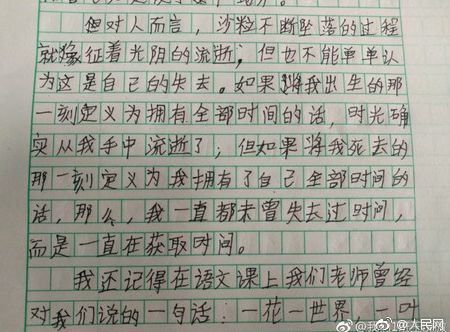 但对人而言，沙粒不断坠落的过程
就像征着光阴的流逝；但也不能单单认
为这是自己的失去。如果将我出生的那
一刻定义为拥有全部时间的话，时光确
实从我手中流逝了；但如果将我死去的
那一刻定义为我拥有了自己全部时间的
话，那么，我一直都未曾失去过时间，
而是一直在获取时间。
我还记得在语文课上我们老师曾经
对我们说的一句话：一花一世界
@人民网